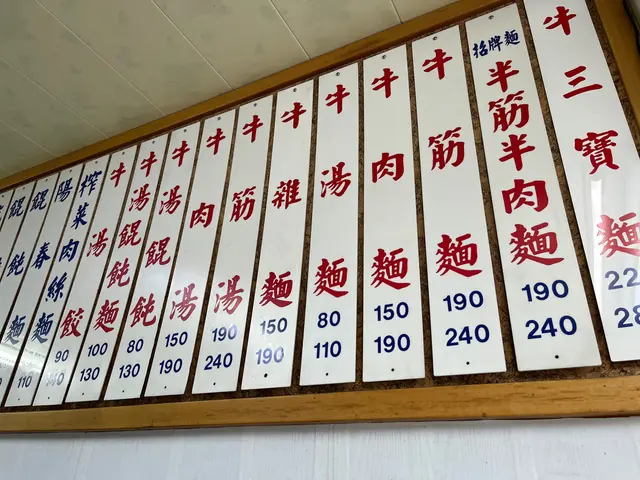 牛三寶麵
招牌麵
半筋半肉麵
190
240
牛筋麵
190
240
牛肉麵
150
190
牛湯麵
80
110
牛雜麵
150
190
牛筋湯
190
240
牛肉湯
150
190
牛湯餛飩
80
130
牛湯餛飩麵
100
130
牛湯餃
90
榨菜肉絲麵
110
陽春麵
餛飩